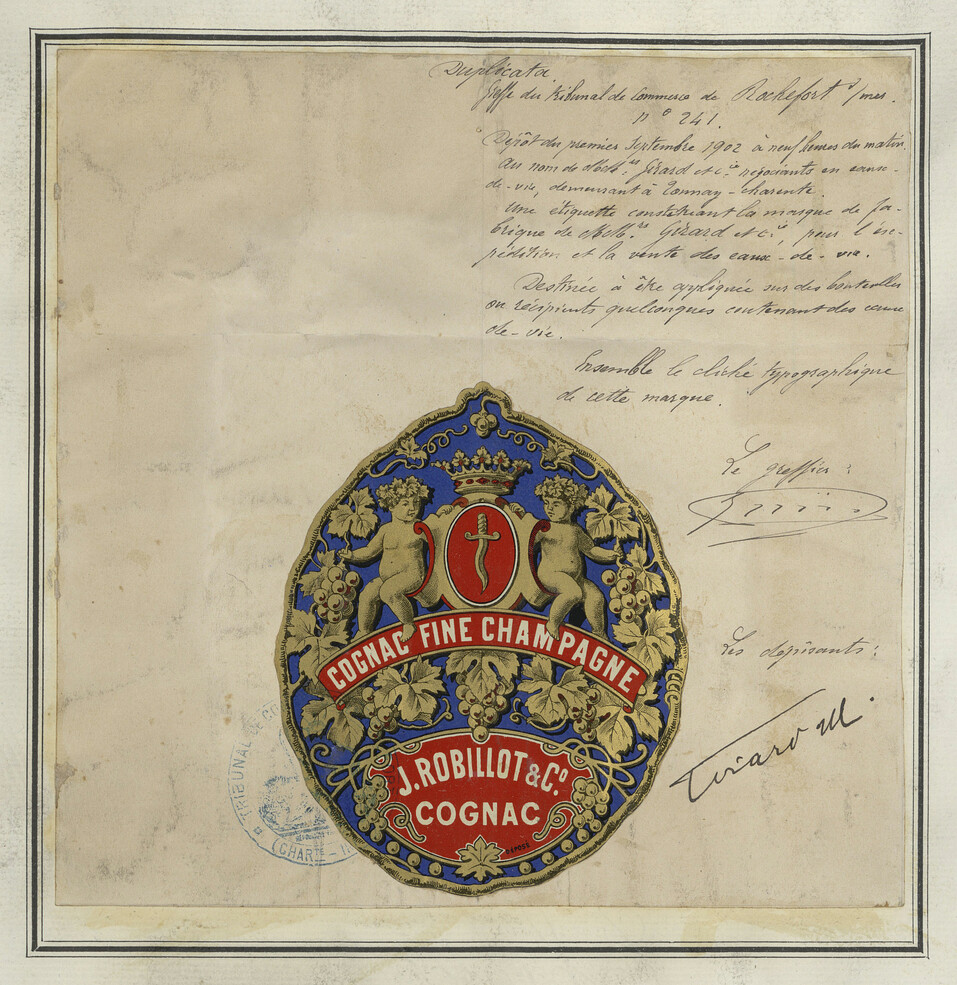 Duplicata
Greffe du Tribunal de Commerce de Rochefort s/mer.
n° 241.
Dépôt du premier Septembre 1902 à neuf heures du matin
au nom de MM.rs Girard et Cie négociants en eaux-
de-vie, demeurant à Tonnay-Charente.
Une étiquette constituant la marque de fa-
brique de MM.rs Girard et Cie, pour l'ex-
pédition et la vente des eaux-de-vie.
Destinée à être appliquée sur des bouteilles
ou récipients quelconques contenant des eaux
de-vie.
Ensemble le cliché typographique
de cette marque.
Le greffier :
Les déposants :
Girard M.
COGNAC FINE CHAMPAGNE
J. ROBILLOT & Co.
COGNAC
DEPOSE
TRIBUNAL DE CO
(CHARTE - I